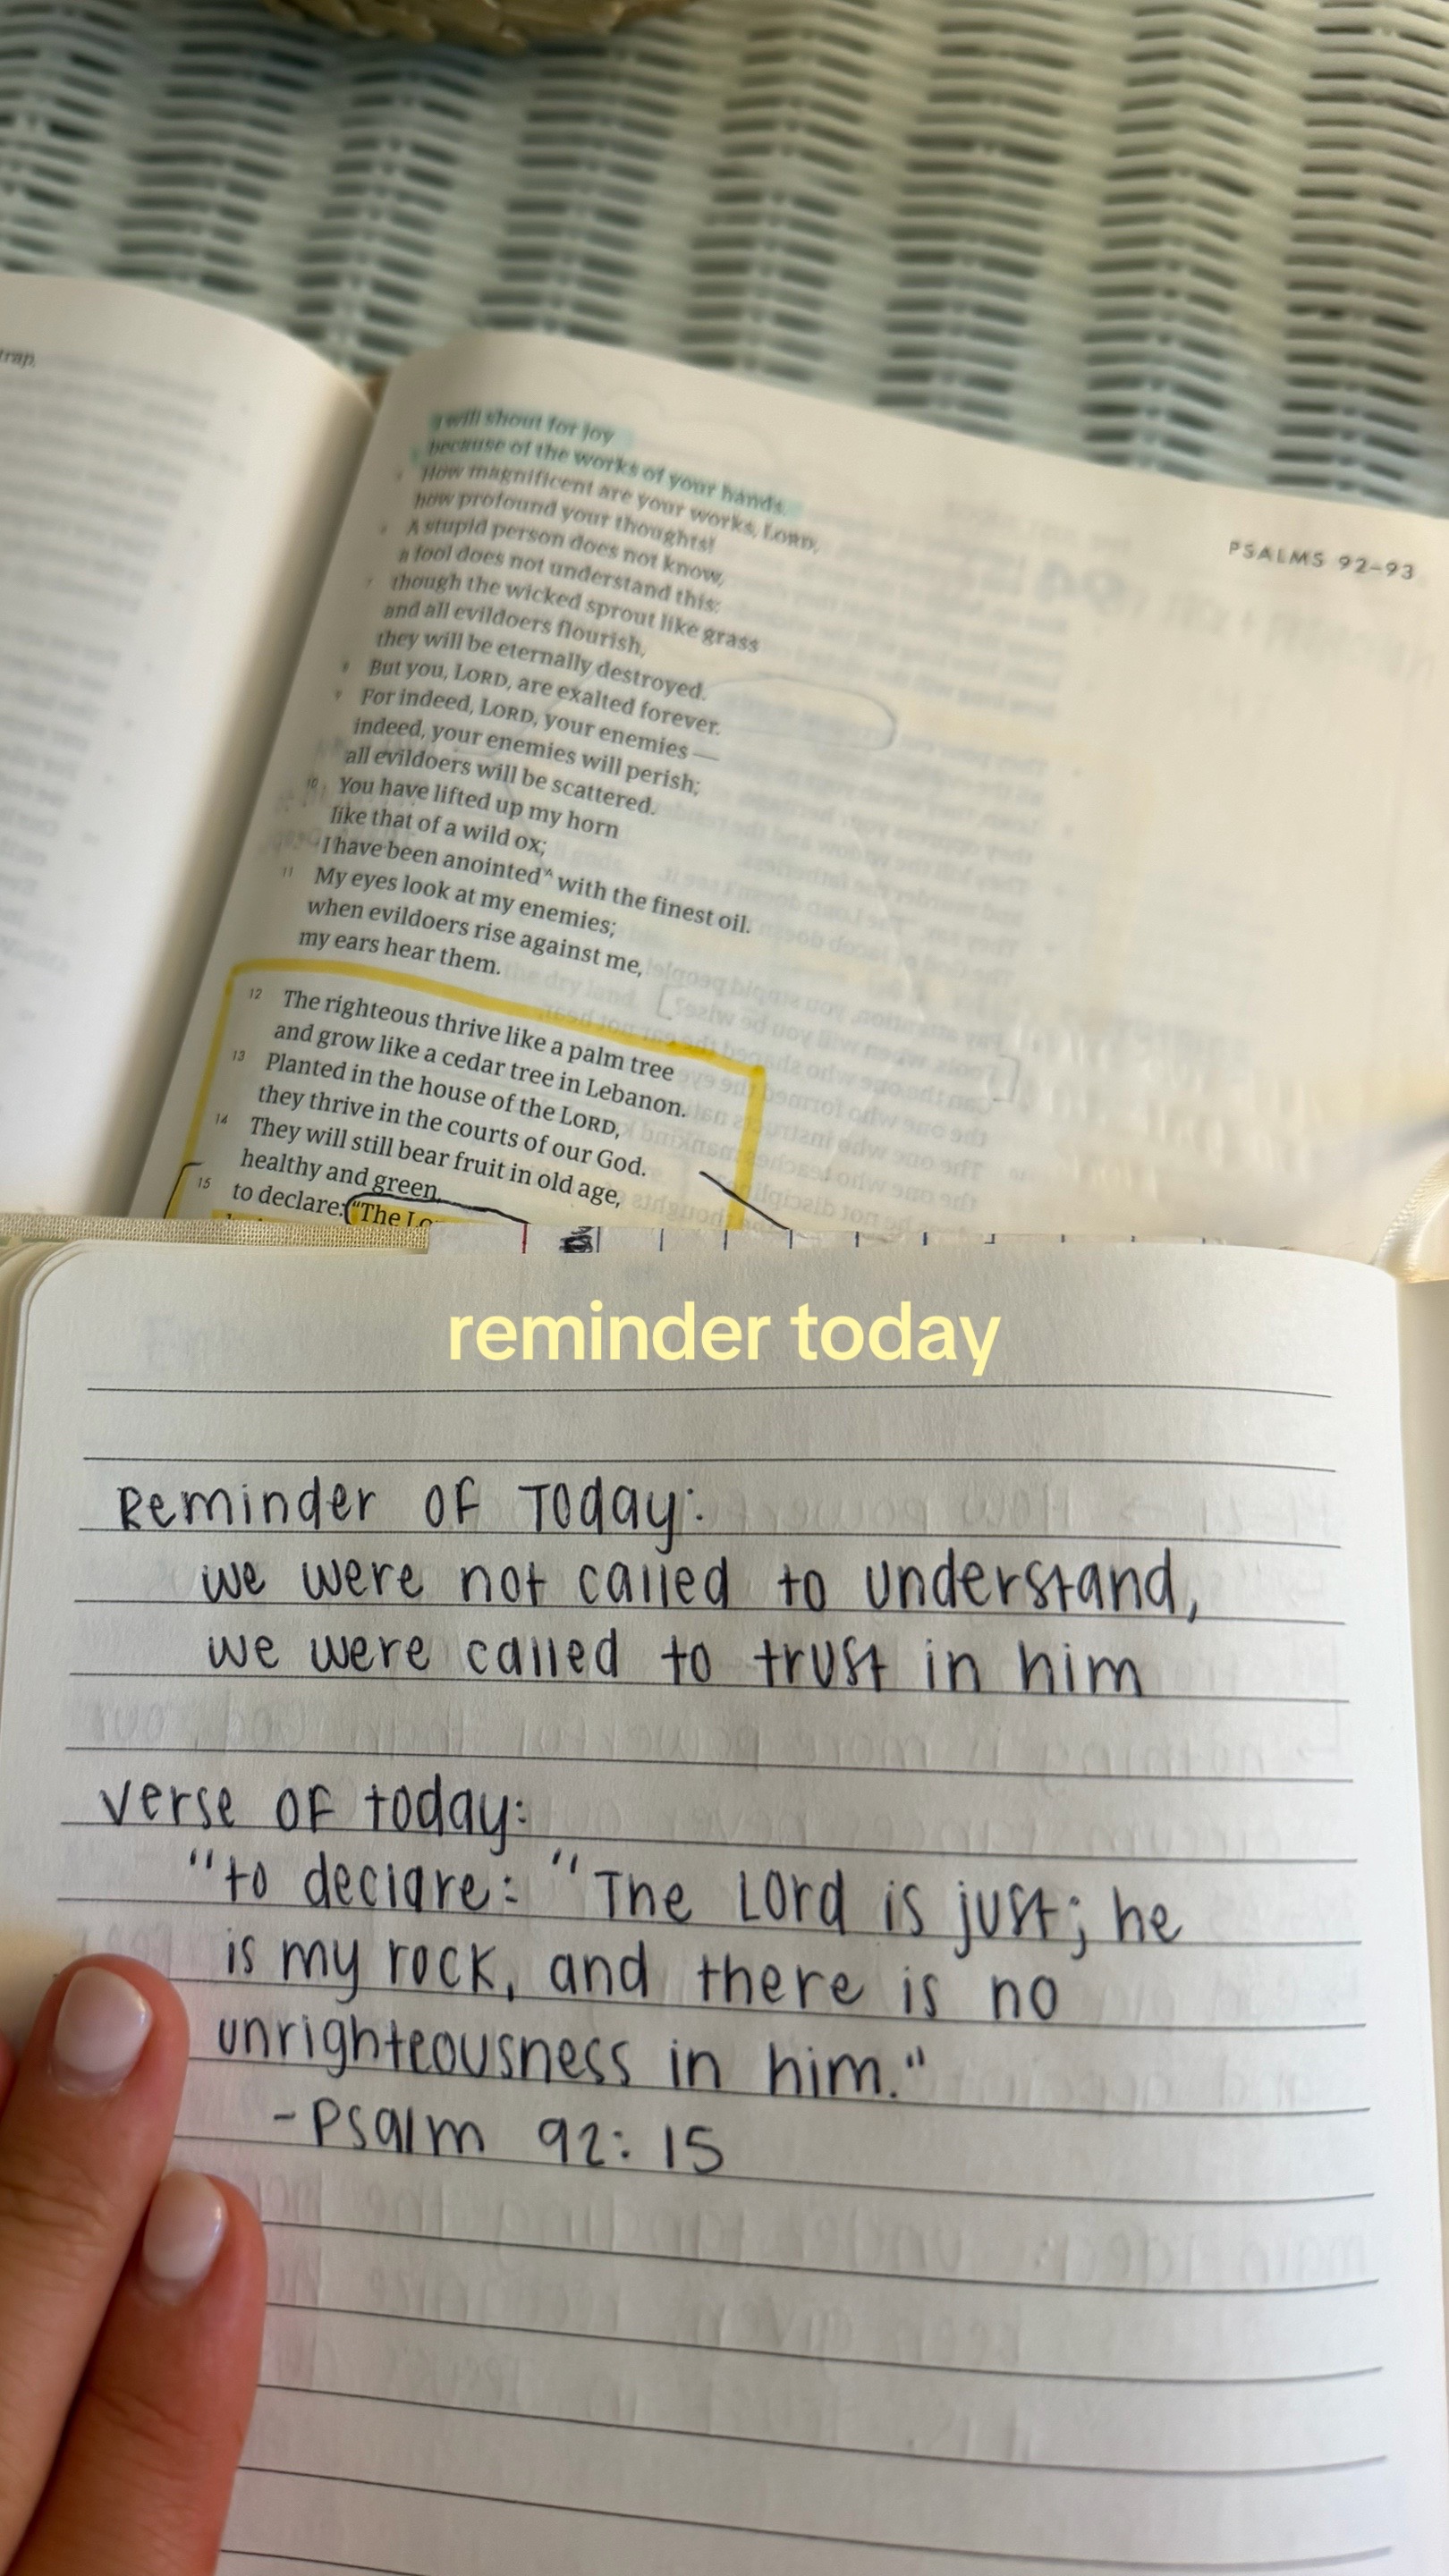 trap.
I will shout for joy
because of the works of your hands.
How magnificent are your works, LORD,
how profound your thoughts!
A stupid person does not know,
a fool does not understand this:
7 though the wicked sprout like grass
and all evildoers flourish,
they will be eternally destroyed.
8 But you, LORD, are exalted forever.
9 For indeed, LORD, your enemies —
indeed, your enemies will perish;
all evildoers will be scattered.
10 You have lifted up my horn
like that of a wild ox;
I have been anointed^A with the finest oil.
11 My eyes look at my enemies;
when evildoers rise against me,
my ears hear them.
12 The righteous thrive like a palm tree
and grow like a cedar tree in Lebanon.
13 Planted in the house of the LORD,
they thrive in the courts of our God.
14 They will still bear fruit in old age,
healthy and green,
15 to declare: “The Lo
PSALMS 92–93
reminder today
Reminder OF Today:
we were not called to understand,
we were called to trust in him
verse OF today:
"to declare: "The Lord is just; he
is my rock, and there is no
unrighteousness in him."
-Psalm 92:15